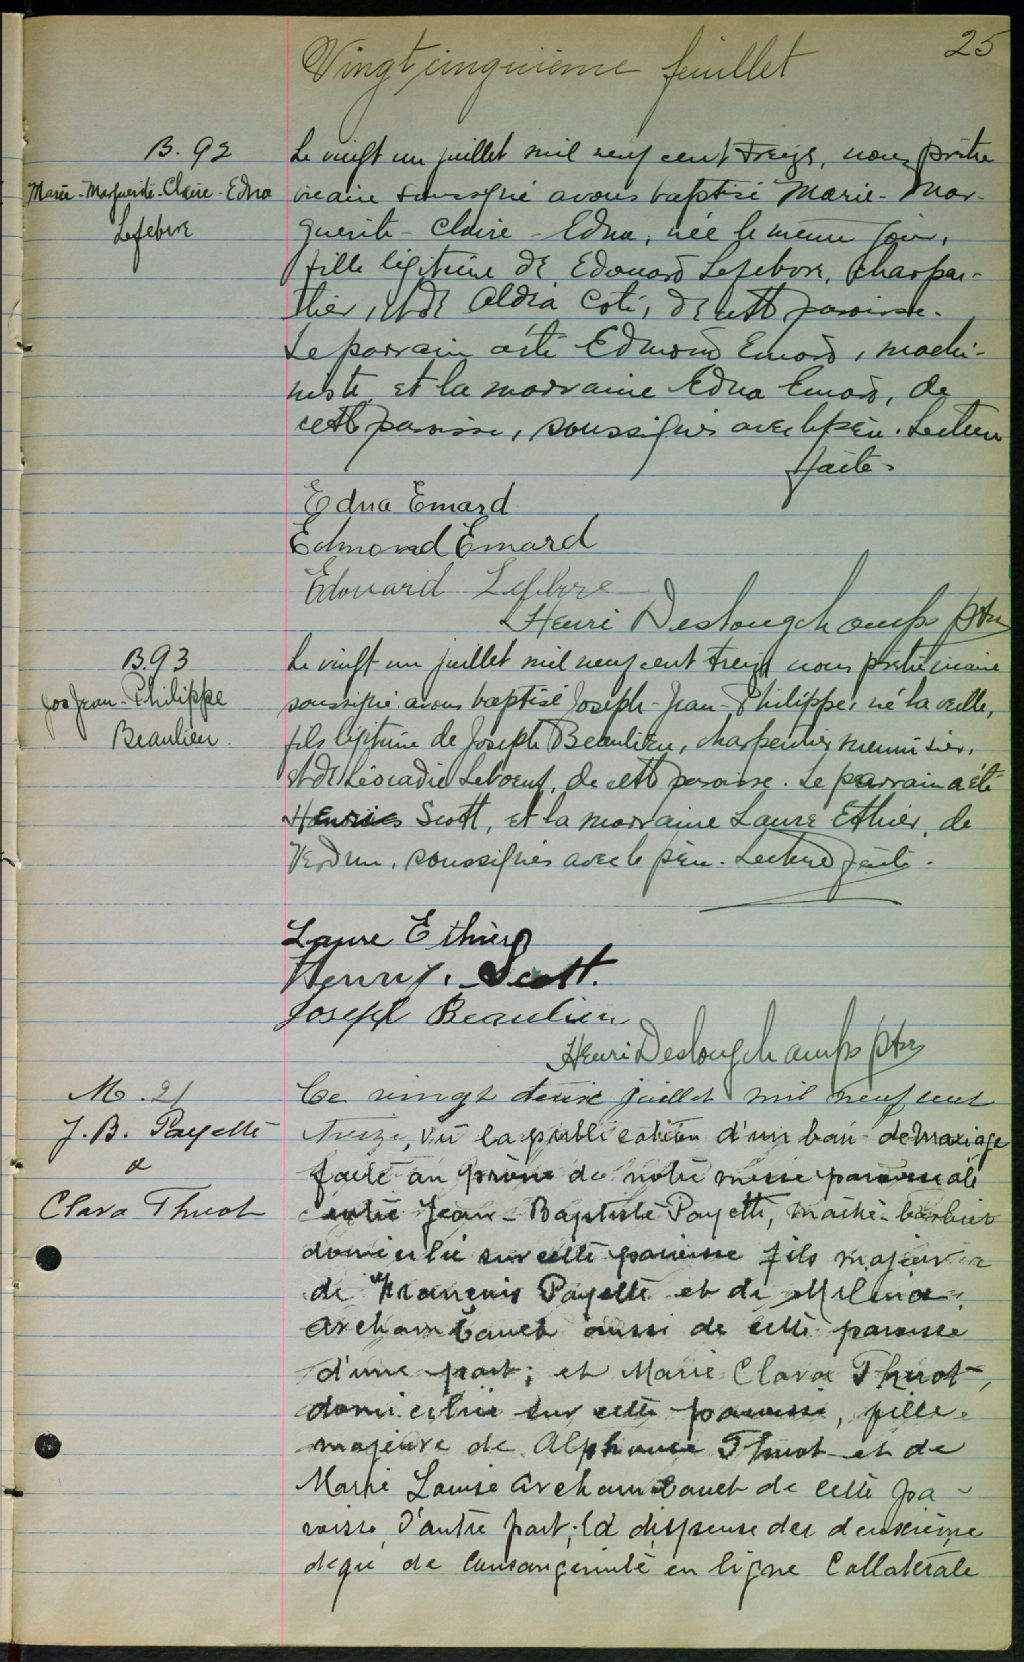 25
Vingt cinquième feuillet
B. 92
Marie-Marguerite-Claire-Edna
Lefebvre
Le vingt un juillet mil neuf cent treize, nous prêtre
vicaire soussigné avons baptisé Marie-Mar-
guerite-Claire-Edna, née le même jour,
fille légitime de Edouard Lefebvre, charpen-
tier, et de Aldéa Coté, de cette paroisse.
Le parrain a été Edmond Emard, machi-
niste, et la marraine Edna Emard, de
cette paroisse, soussignés avec le père. Lecture
faite.
Edna Emard
Edmond Emard
Edouard Lefebvre
Henri Deslongchamps ptre
B. 93
Jos Jean-Philippe
Beaulieu
Le vingt un juillet mil neuf cent treize nous prêtre vicaire
soussigné avons baptisé Joseph-Jean-Philippe, né la veille,
fils légitime de Joseph Beaulieu, charpentier menuisier,
et de Léocadie Leboeuf, de cette paroisse. Le parrain a été
Scott, et la marraine Laure Ethier, de
Verdun, soussignés avec le père. Lecture faite.
Laure Ethier
Henry Scott.
Joseph Beaulieu
Henri Deslongchamps ptre
M. 21
J. B. Payette
&
Clara Thuot
Ce vingt deux juillet mil neuf cent
treize, vu la publication d'un ban de mariage
faite au prône de notre messe paroissiale
entre Jean-Baptiste Payette, maître-barbier
domicilié sur cette paroisse fils majeur
de François Payette et de Melina
Archambault aussi de cette paroisse
d'une part; et Marie Clara Thuot,
domiciliée sur cette paroisse, fille
majeure de Alphonse Thuot et de
Marie Louise Archambault de cette pa-
roisse, d'autre part; la dispense des deuxième
degré de consanguinité en ligne Collatérale